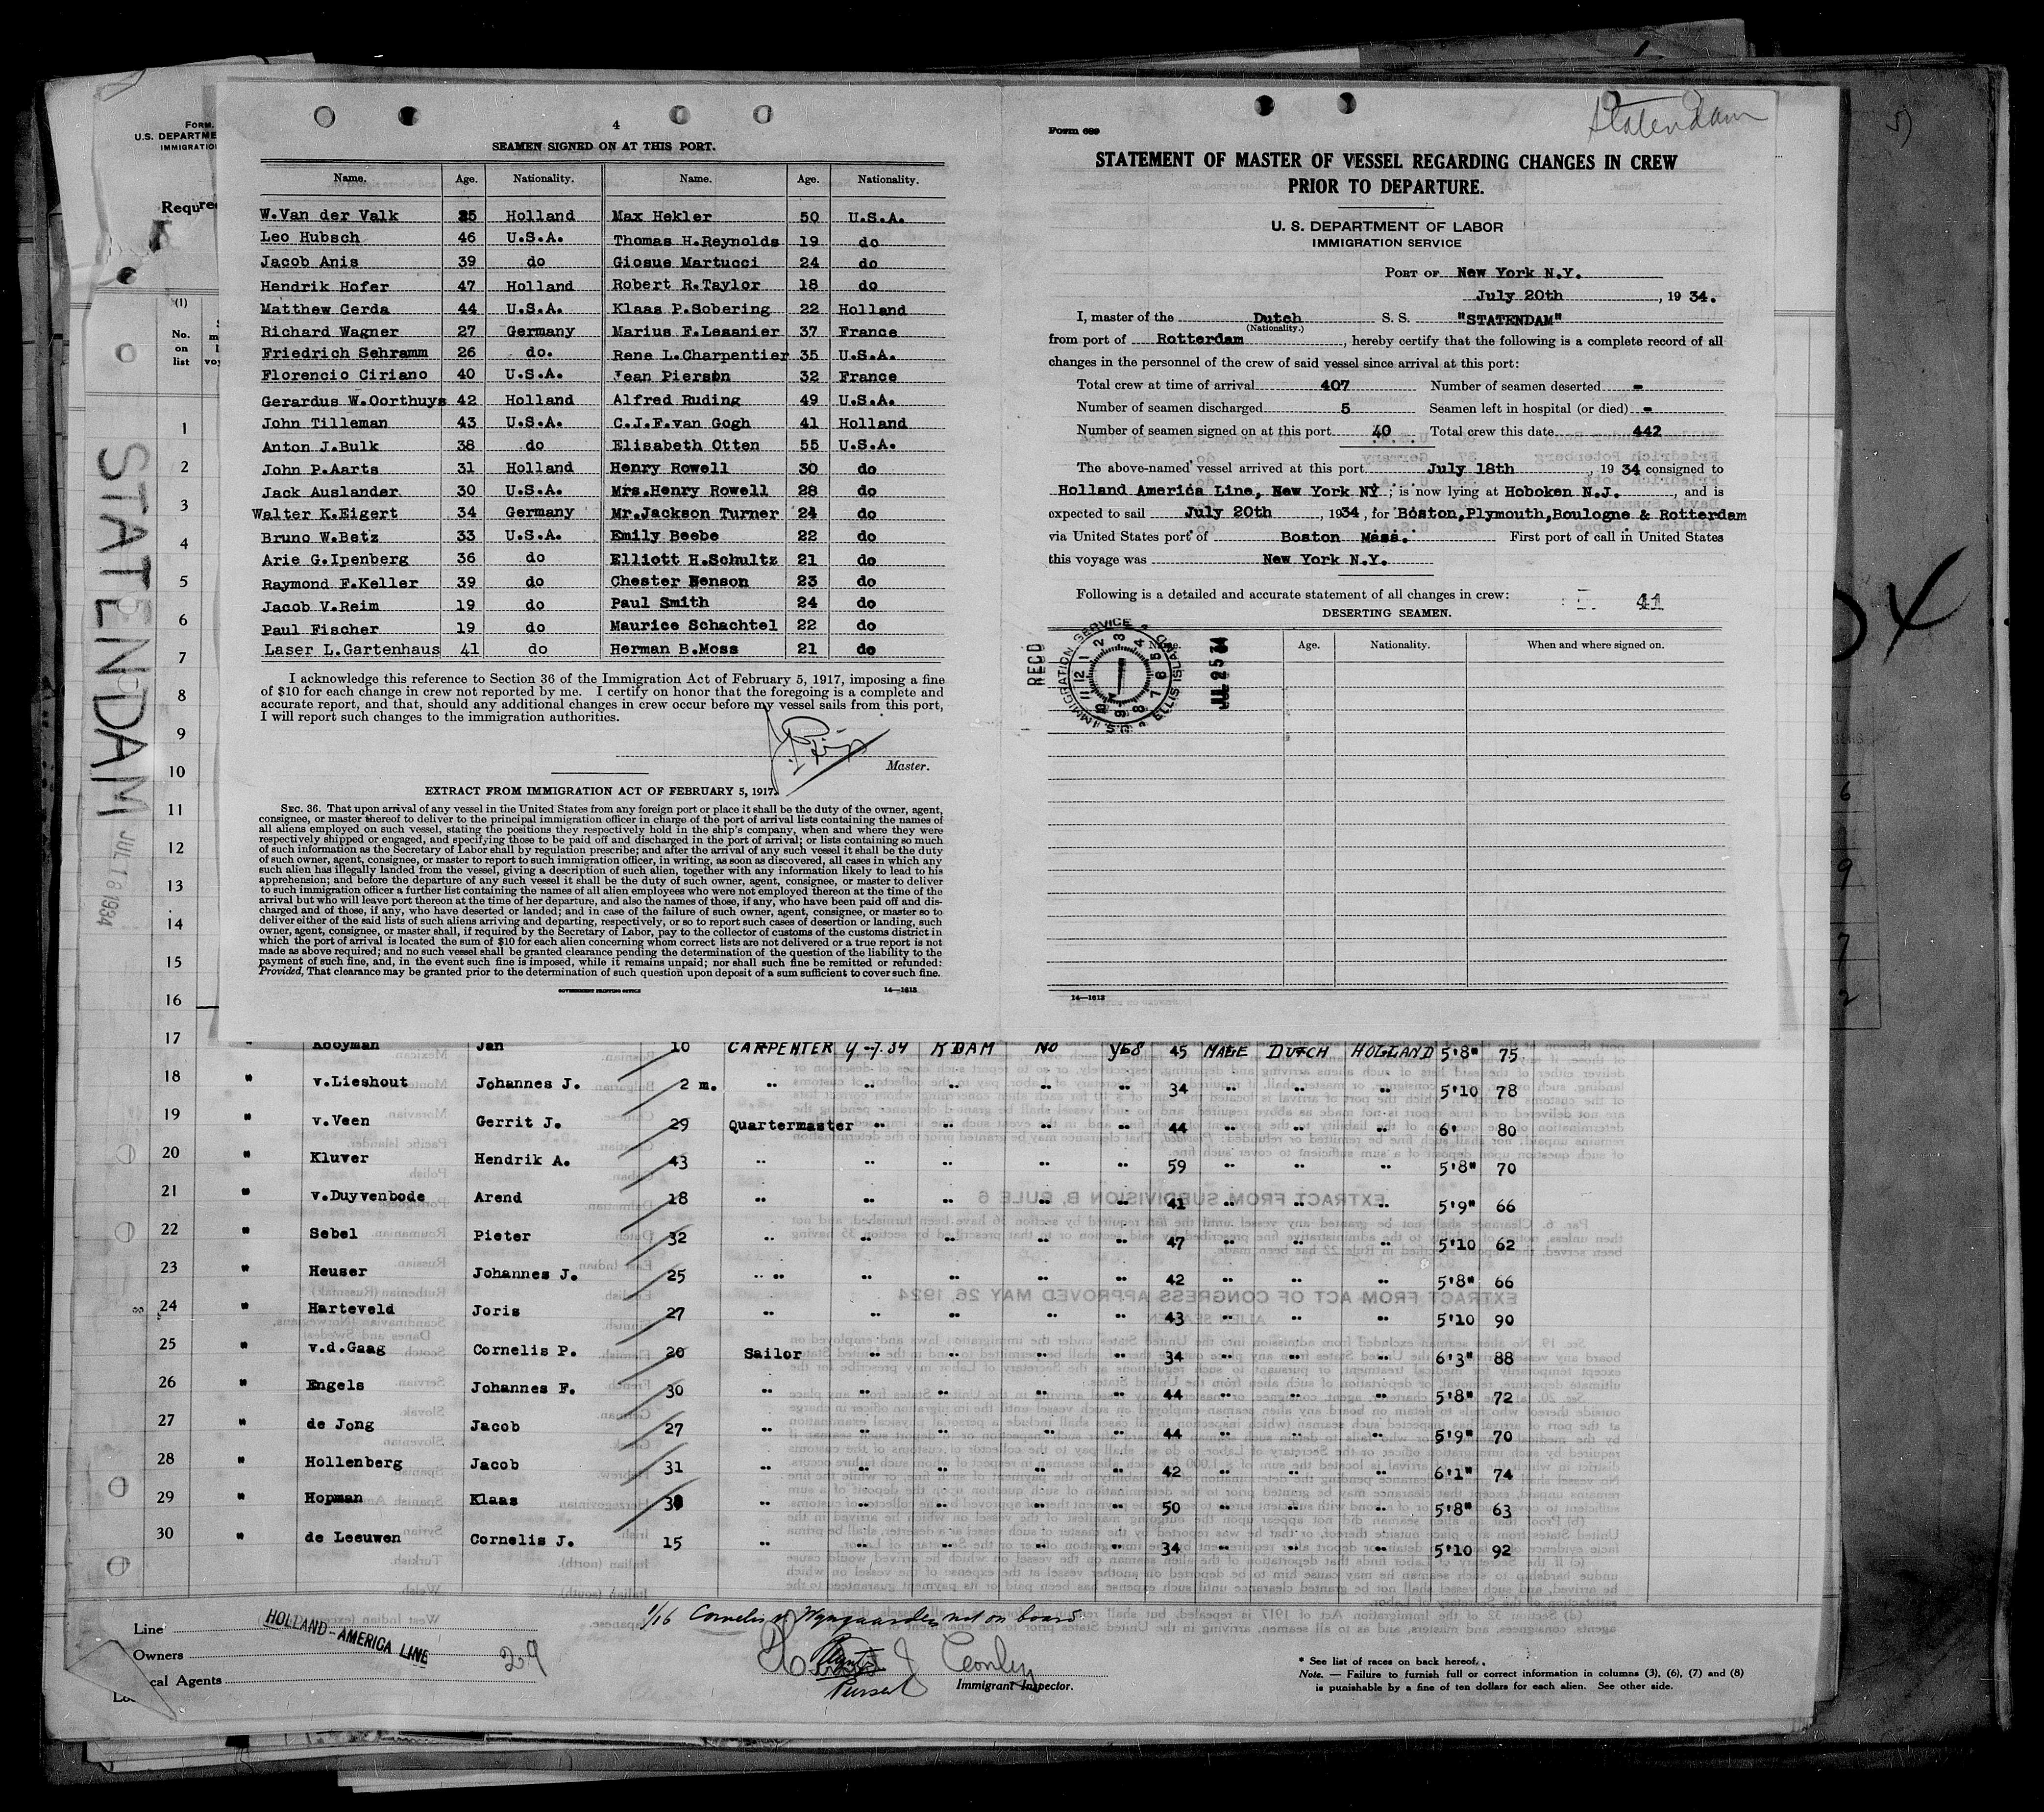 Statendam
Form 689
STATEMENT OF MASTER OF VESSEL REGARDING CHANGES IN CREW
PRIOR TO DEPARTURE.
U. S. DEPARTMENT OF LABOR
IMMIGRATION SERVICE
PORT OF New York N.Y.
July 20th, 1934.
I, master of the Dutch S. S. "STATENDAM"
(Nationality.)
from port of Rotterdam, hereby certify that the following is a complete record of all
changes in the personnel of the crew of said vessel since arrival at this port:
Total crew at time of arrival 407 Number of seamen deserted -
Number of seamen discharged 5 Seamen left in hospital (or died) -
Number of seamen signed on at this port 40 Total crew this date 442
The above-named vessel arrived at this port July 18th, 1934 consigned to
Holland America Line, New York NY; is now lying at Hoboken N.J., and is
expected to sail July 20th, 1934, for Boston,Plymouth,Boulogne & Rotterdam
via United States port of Boston Mass. First port of call in United States
this voyage was New York N.Y.
Following is a detailed and accurate statement of all changes in crew: 41
DESERTING SEAMEN.
Age. Nationality. When and where signed on.
RECD
U.S. IMMIGRATION SERVICE ELLIS ISLAND
JUL 25 34
14—1613
4
SEAMEN SIGNED ON AT THIS PORT.
Name. Age. Nationality. Name. Age. Nationality.
W.Van der Valk 25 Holland Max Hekler 50 U.S.A.
Leo Hubsch 46 U.S.A. Thomas H.Reynolds 19 do
Jacob Anis 39 do Giosue Martucci 24 do
Hendrik Hofer 47 Holland Robert R.Taylor 18 do
Matthew Cerda 44 U.S.A. Klaas P.Sobering 22 Holland
Richard Wagner 27 Germany Marius F.Lesanier 37 France
Friedrich Sehramm 26 do. Rene L.Charpentier 35 U.S.A.
Florencio Ciriano 40 U.S.A. Jean Pierson 32 France
Gerardus W.Oorthuys 42 Holland Alfred Ruding 49 U.S.A.
John Tilleman 43 U.S.A. C.J.F.van Gogh 41 Holland
Anton J.Bulk 38 do Elisabeth Otten 55 U.S.A.
John P.Aarts 31 Holland Henry Rowell 30 do
Jack Auslander 30 U.S.A. Mrs.Henry Rowell 28 do
Walter K.Eigert 34 Germany Mr.Jackson Turner 24 do
Bruno W.Betz 33 U.S.A. Emily Beebe 22 do
Arie G.Ipenberg 36 do Elliott H.Schultz 21 do
Raymond F.Keller 39 do Chester Henson 23 do
Jacob V.Reim 19 do Paul Smith 24 do
Paul Fischer 19 do Maurice Schachtel 22 do
Laser L.Gartenhaus 41 do Herman B.Moss 21 do
I acknowledge this reference to Section 36 of the Immigration Act of February 5, 1917, imposing a fine
of $10 for each change in crew not reported by me. I certify on honor that the foregoing is a complete and
accurate report, and that, should any additional changes in crew occur before my vessel sails from this port,
I will report such changes to the immigration authorities.
Master.
EXTRACT FROM IMMIGRATION ACT OF FEBRUARY 5, 1917.
SEC. 36. That upon arrival of any vessel in the United States from any foreign port or place it shall be the duty of the owner, agent,
consignee, or master thereof to deliver to the principal immigration officer in charge of the port of arrival lists containing the names of
all aliens employed on such vessel, stating the positions they respectively hold in the ship's company, when and where they were
respectively shipped or engaged, and specifying those to be paid off and discharged in the port of arrival; or lists containing so much
of such information as the Secretary of Labor shall by regulation prescribe; and after the arrival of any such vessel it shall be the duty
of such owner, agent, consignee, or master to report to such immigration officer, in writing, as soon as discovered, all cases in which any
such alien has illegally landed from the vessel, giving a description of such alien, together with any information likely to lead to his
apprehension; and before the departure of any such vessel it shall be the duty of such owner, agent, consignee, or master to deliver
to such immigration officer a further list containing the names of all alien employees who were not employed thereon at the time of the
arrival but who will leave port thereon at the time of her departure, and also the names of those, if any, who have been paid off and dis-
charged and of those, if any, who have deserted or landed; and in case of the failure of such owner, agent, consignee, or master so to
deliver either of the said lists of such aliens arriving and departing, respectively, or so to report such cases of desertion or landing, such
owner, agent, consignee, or master shall, if required by the Secretary of Labor, pay to the collector of customs of the customs district in
which the port of arrival is located the sum of $10 for each alien concerning whom correct lists are not delivered or a true report is not
made as above required; and no such vessel shall be granted clearance pending the determination of the question of the liability to the
payment of such fine, and, in the event such fine is imposed, while it remains unpaid; nor shall such fine be remitted or refunded:
Provided, That clearance may be granted prior to the determination of such question upon deposit of a sum sufficient to cover such fine.
GOVERNMENT PRINTING OFFICE 14—1613
FORM
U.S. DEPARTME
IMMIGRATIO
(1)
No.
on
list
STATENDAM
JUL 18 1934
1
2
3
4
5
6
7
8
9
10
11
12
13
14
15
16
17 " Kooyman Jan 10 CARPENTER 9-7.34 RDAM NO yes 45 MALE DUTCH HOLLAND 5'8" 75
18 " v.Lieshout Johannes J. 2 m. " " " " " 34 " " " 5'10 78
19 " v.Veen Gerrit J. 29 Quartermaster " " " " 44 " " " 6' 80
20 " Kluver Hendrik A. 43 " " " " " 59 " " " 5'8" 70
21 " v.Duyvenbode Arend 18 " " " " " 41 " " " 5'9" 66
22 " Sebel Pieter 32 " " " " " 47 " " " 5'10 62
23 " Heuser Johannes J. 25 " " " " " 42 " " " 5'8" 66
24 " Harteveld Joris 27 " " " " " 43 " " " 5'10 90
25 " v.d.Gaag Cornelis P. 20 Sailor " " " " 34 " " " 6'3" 88
26 " Engels Johannes F. 30 " " " " " 44 " " " 5'8" 72
27 " de Jong Jacob 27 " " " " " 44 " " " 5'9" 70
28 " Hollenberg Jacob 31 " " " " " 42 " " " 6'1" 74
29 " Hopman Klaas " " " " " 50 " " " 5'8" 63
30 " de Leeuwen Cornelis J. 15 " " " " " 34 " " " 5'10 92
1/16 Cornelis v Wyngaarden not on board
Line HOLLAND-AMERICA LINE
Owners 29
cal Agents
Immigrant Inspector.
* See list of races on back hereof.
Note. — Failure to furnish full or correct information in columns (3), (6), (7) and (8)
is punishable by a fine of ten dollars for each alien. See other side.